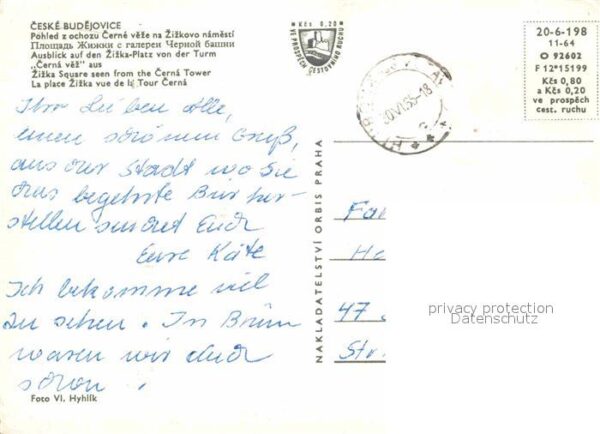 ČESKÉ BUDĚJOVICE
Pohled z ochozu Černé věže na Žižkovo náměstí
Площадь Жижки с галереи Черной башни
Ausblick auf den Žižka-Platz von der Turm
„Černá věž" aus
Žižka Square seen from the Černá Tower
La place Žižka vue de la Tour Černá
Ihr Lieben Alle,
einen schönen Gruß,
aus der Stadt wo Sie
das begehrte Bier her-
stellen sendet Euch
Eure Käte
Ich bekomme viel
zu sehen. In Brünn
waren wir auch
schon.
Foto Vl. Hyhlík
NAKLADATELSTVÍ ORBIS PRAHA
Kčs 0,20
VE PROSPĚCH CESTOVNÍHO RUCHU
20-6-198
11-64
O 92602
F 12*15199
Kčs 0,80
a Kčs 0,20
ve prospěch
cest. ruchu
Fa
Ha
47
Str.
privacy protection
Datenschutz